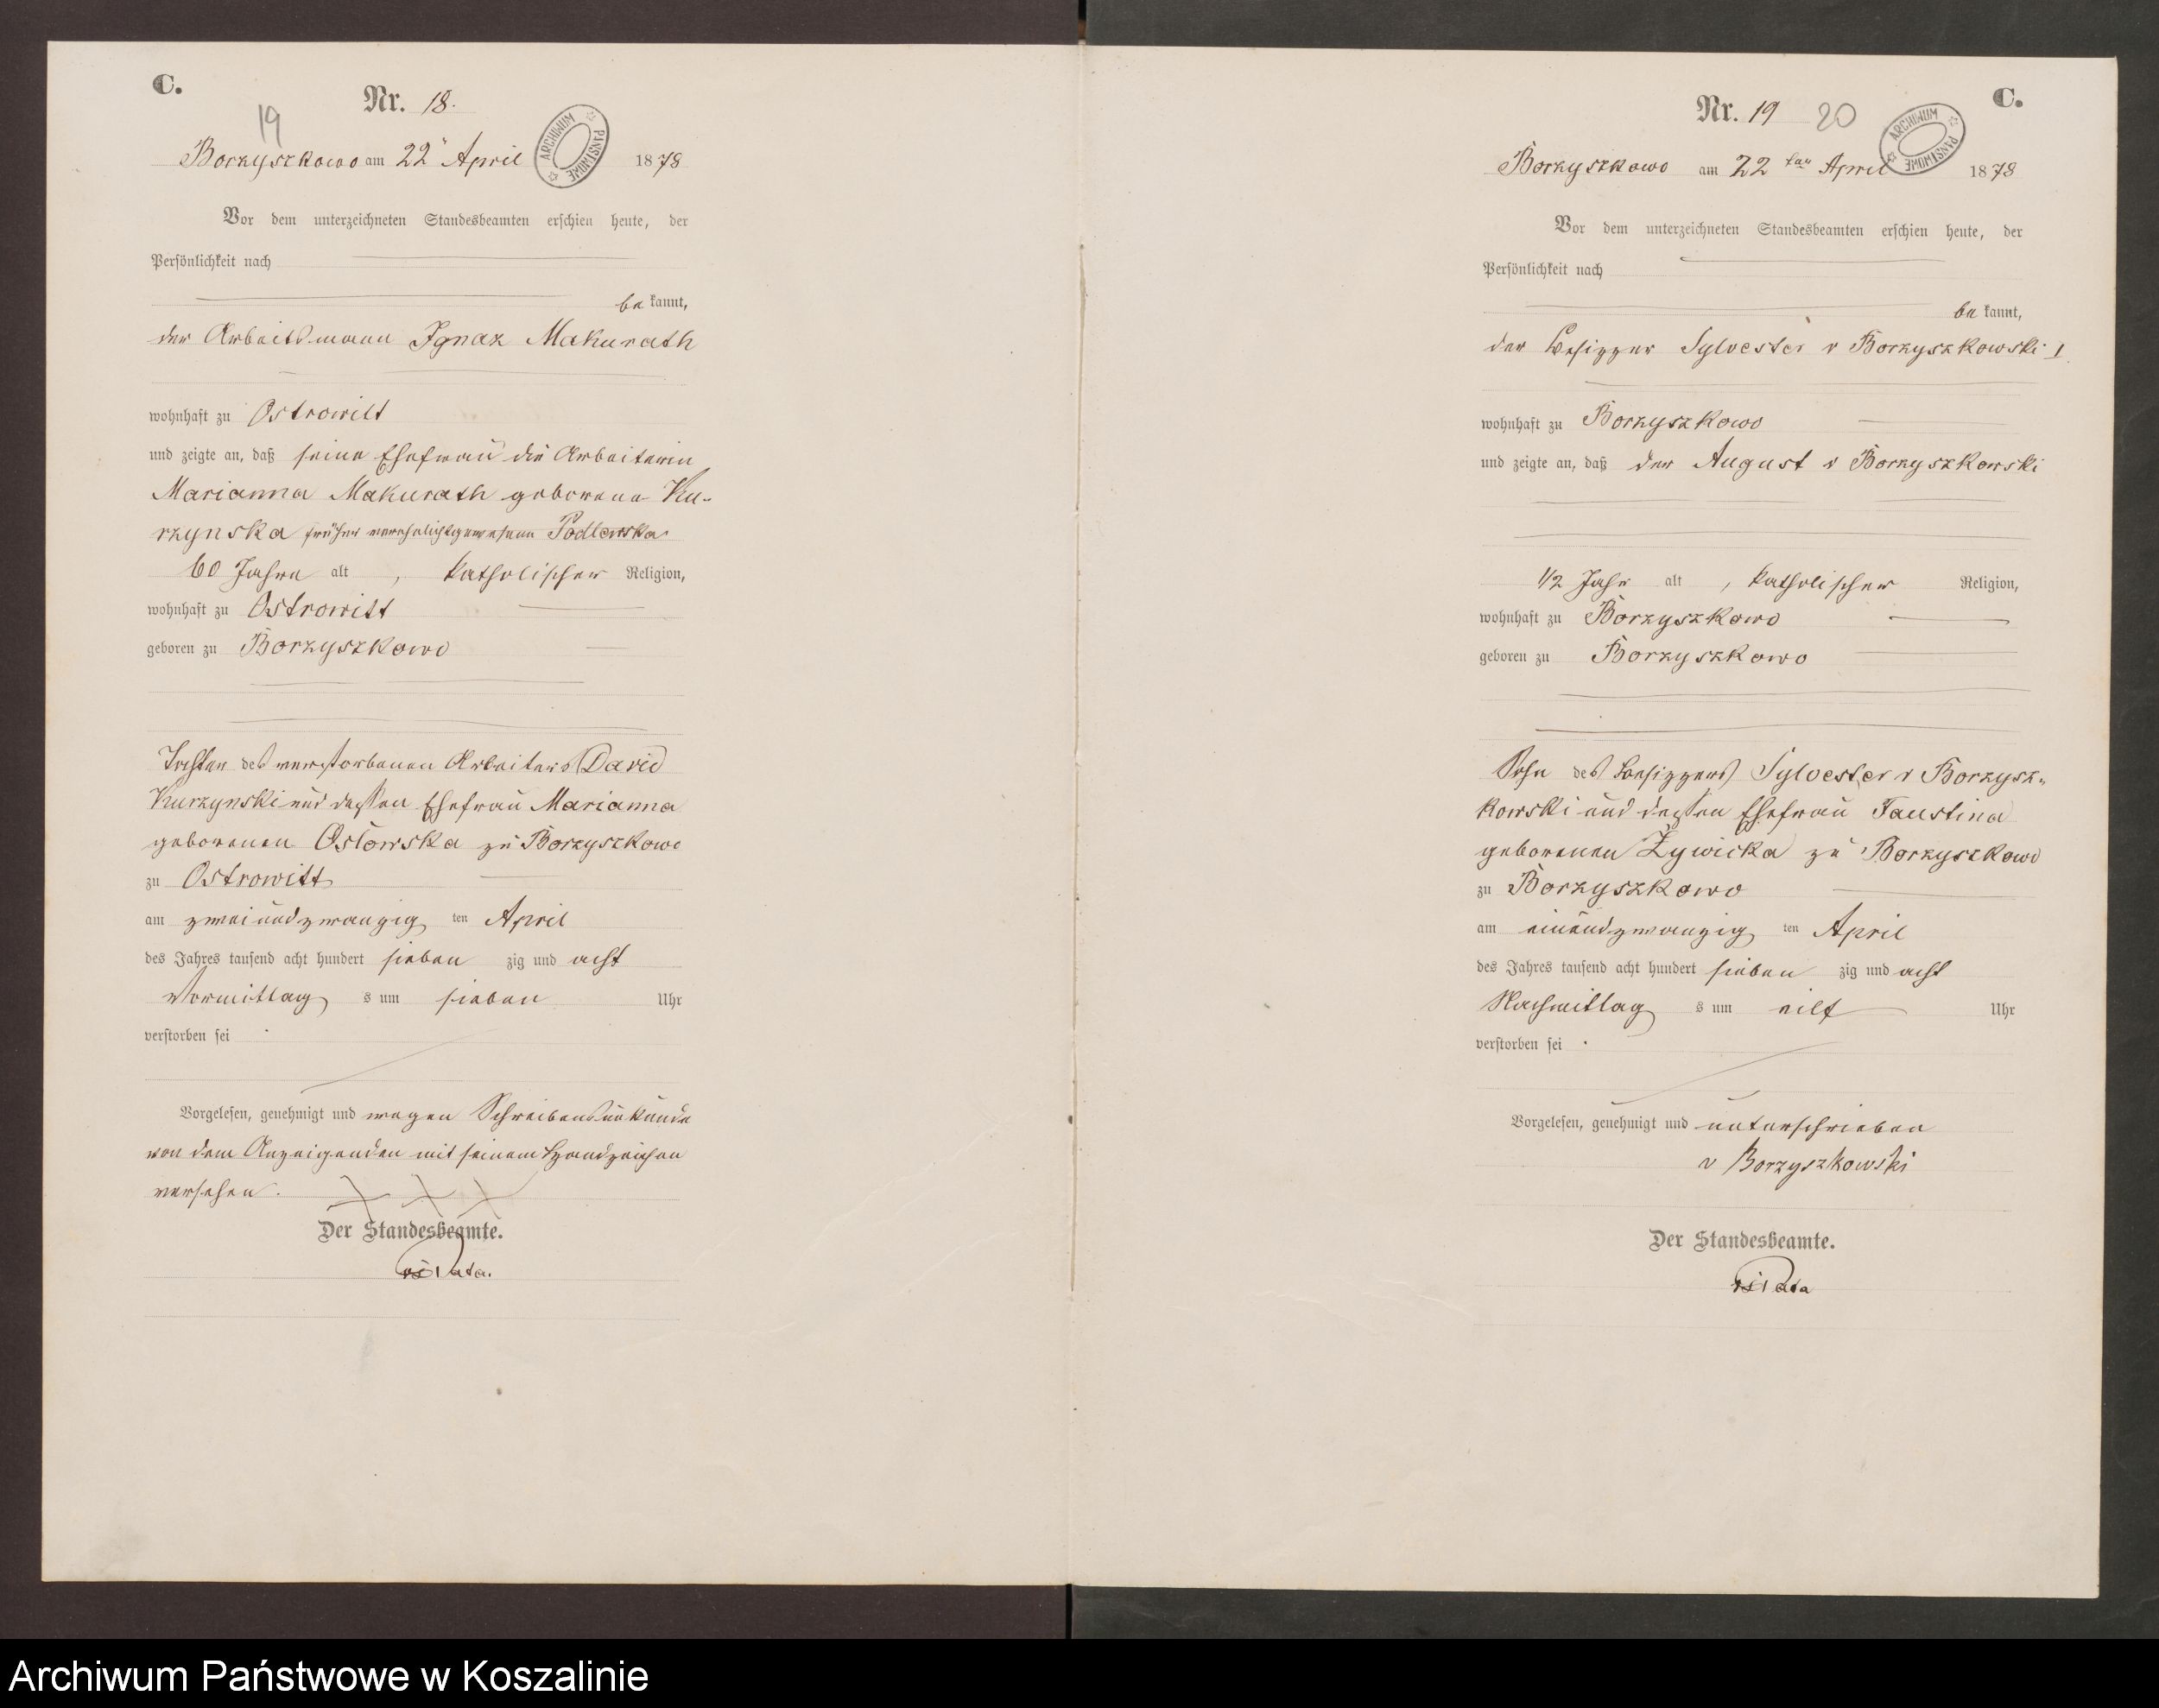 C.
Nr. 18.
19
ARCHIWUM PAŃSTWOWE
Borzyszkowo am 22 April 1878
Vor dem unterzeichneten Standesbeamten erschien heute, der
Persönlichkeit nach
be kannt,
der Arbeitsmann Ignaz Makurath
wohnhaft zu Ostrowitt
und zeigte an, daß seine Ehefrau die Arbeiterin
Marianna Makurath geborene Ku-
rzynska früher verehelicht gewesene Podlewska
60 Jahre alt, katholischer Religion,
wohnhaft zu Ostrowitt
geboren zu Borzyszkowo
Tochter des verstorbenen Arbeiters David
Kurzynski und dessen Ehefrau Marianna
geborenen Ostowska zu Borzyszkowo
zu Ostrowitt
am zweiundzwanzig ten April
des Jahres tausend acht hundert sieben zig und acht
Vormittag s um sieben Uhr
verstorben sei.
Vorgelesen, genehmigt und wegen Schreibensunkunde
von dem Anzeigenden mit seinem Handzeichen
versehen. XXX
Der Standesbeamte.
C.
Nr. 19
20
ARCHIWUM PAŃSTWOWE
Borzyszkowo am 22 ten April 1878
Vor dem unterzeichneten Standesbeamten erschien heute, der
Persönlichkeit nach
be kannt,
der Besitzer Sylvester v Borzyszkowski I
wohnhaft zu Borzyszkowo
und zeigte an, daß der August v Borzyszkowski
1/2 Jahr alt, katholischer Religion,
wohnhaft zu Borzyszkowo
geboren zu Borzyszkowo
Sohn des Besitzers Sylvester v Borzysz-
kowski und dessen Ehefrau Faustina
geborenen Żywicka zu Borzyszkowo
zu Borzyszkowo
am einundzwanzig ten April
des Jahres tausend acht hundert sieben zig und acht
Nachmittag s um eilf Uhr
verstorben sei.
Vorgelesen, genehmigt und unterschrieben
v Borzyszkowski
Der Standesbeamte.
Archiwum Państwowe w Koszalinie